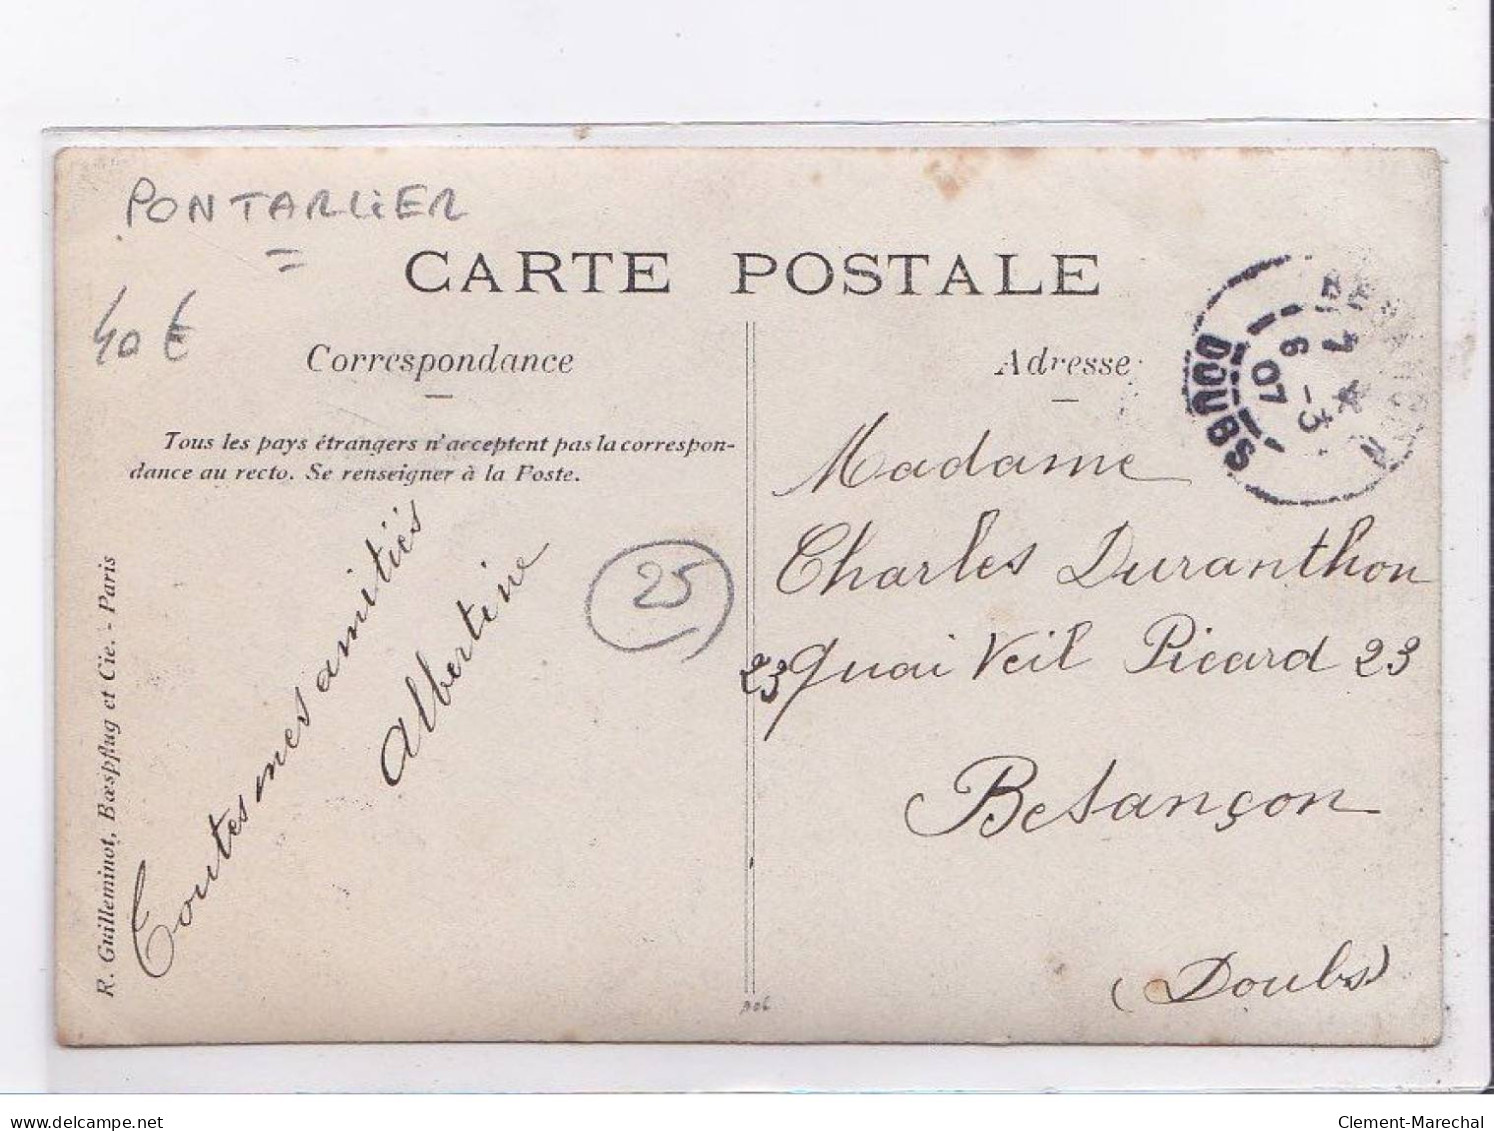 PONTARLIER
40 €
CARTE POSTALE
Correspondance
Tous les pays étrangers n'acceptent pas la correspon-
dance au recto. Se renseigner à la Poste.
Toutes mes amitiés
Albertine
25
R. Guilleminot, Bœspflug et Cie. - Paris
Adresse
Madame
Charles Duranthon
23 quai Veil Picard 23
Besançon
(Doubs)
DOUBS
6 -3
07
delcampe.net
Clement-Marechal